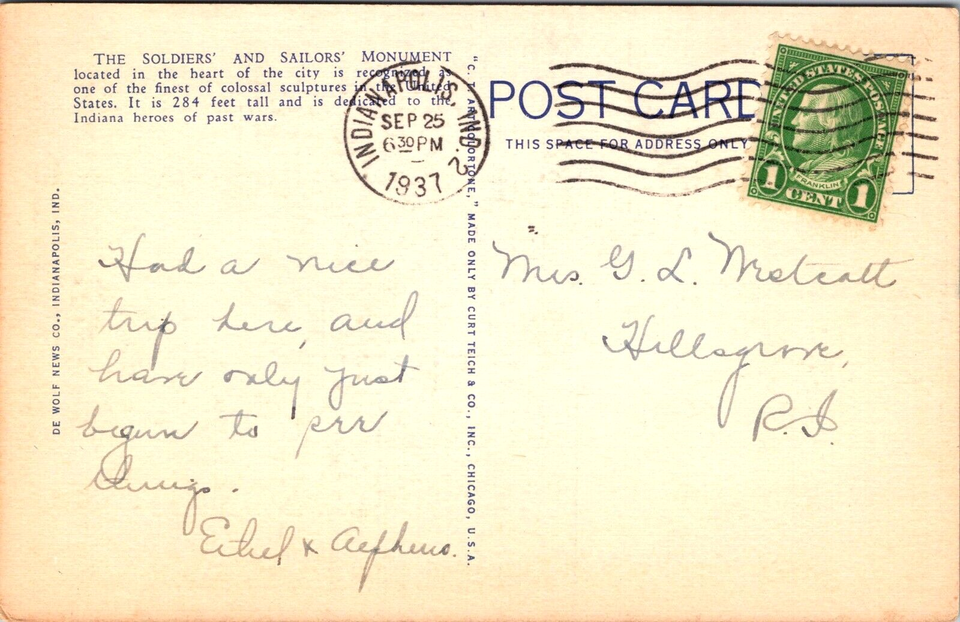 THE SOLDIERS' AND SAILORS' MONUMENT
located in the heart of the city is recognized as
one of the finest of colossal sculptures in the United
States. It is 284 feet tall and is dedicated to the
Indiana heroes of past wars.
DE WOLF NEWS CO., INDIANAPOLIS, IND.
Had a nice
trip here, and
have only just
begun to see
things.
Ethel &
"C. T. ART-COLORTONE," MADE ONLY BY CURT TEICH & CO., INC., CHICAGO, U.S.A.
INDIANAPOLIS, IND. 2
SEP 25
6 30 PM
1937
POST CARD
THIS SPACE FOR ADDRESS ONLY
UNITED STATES POSTAGE
FRANKLIN
1 CENT 1
Mrs. G. L. Westcott
Hillsgrove,
R.I.